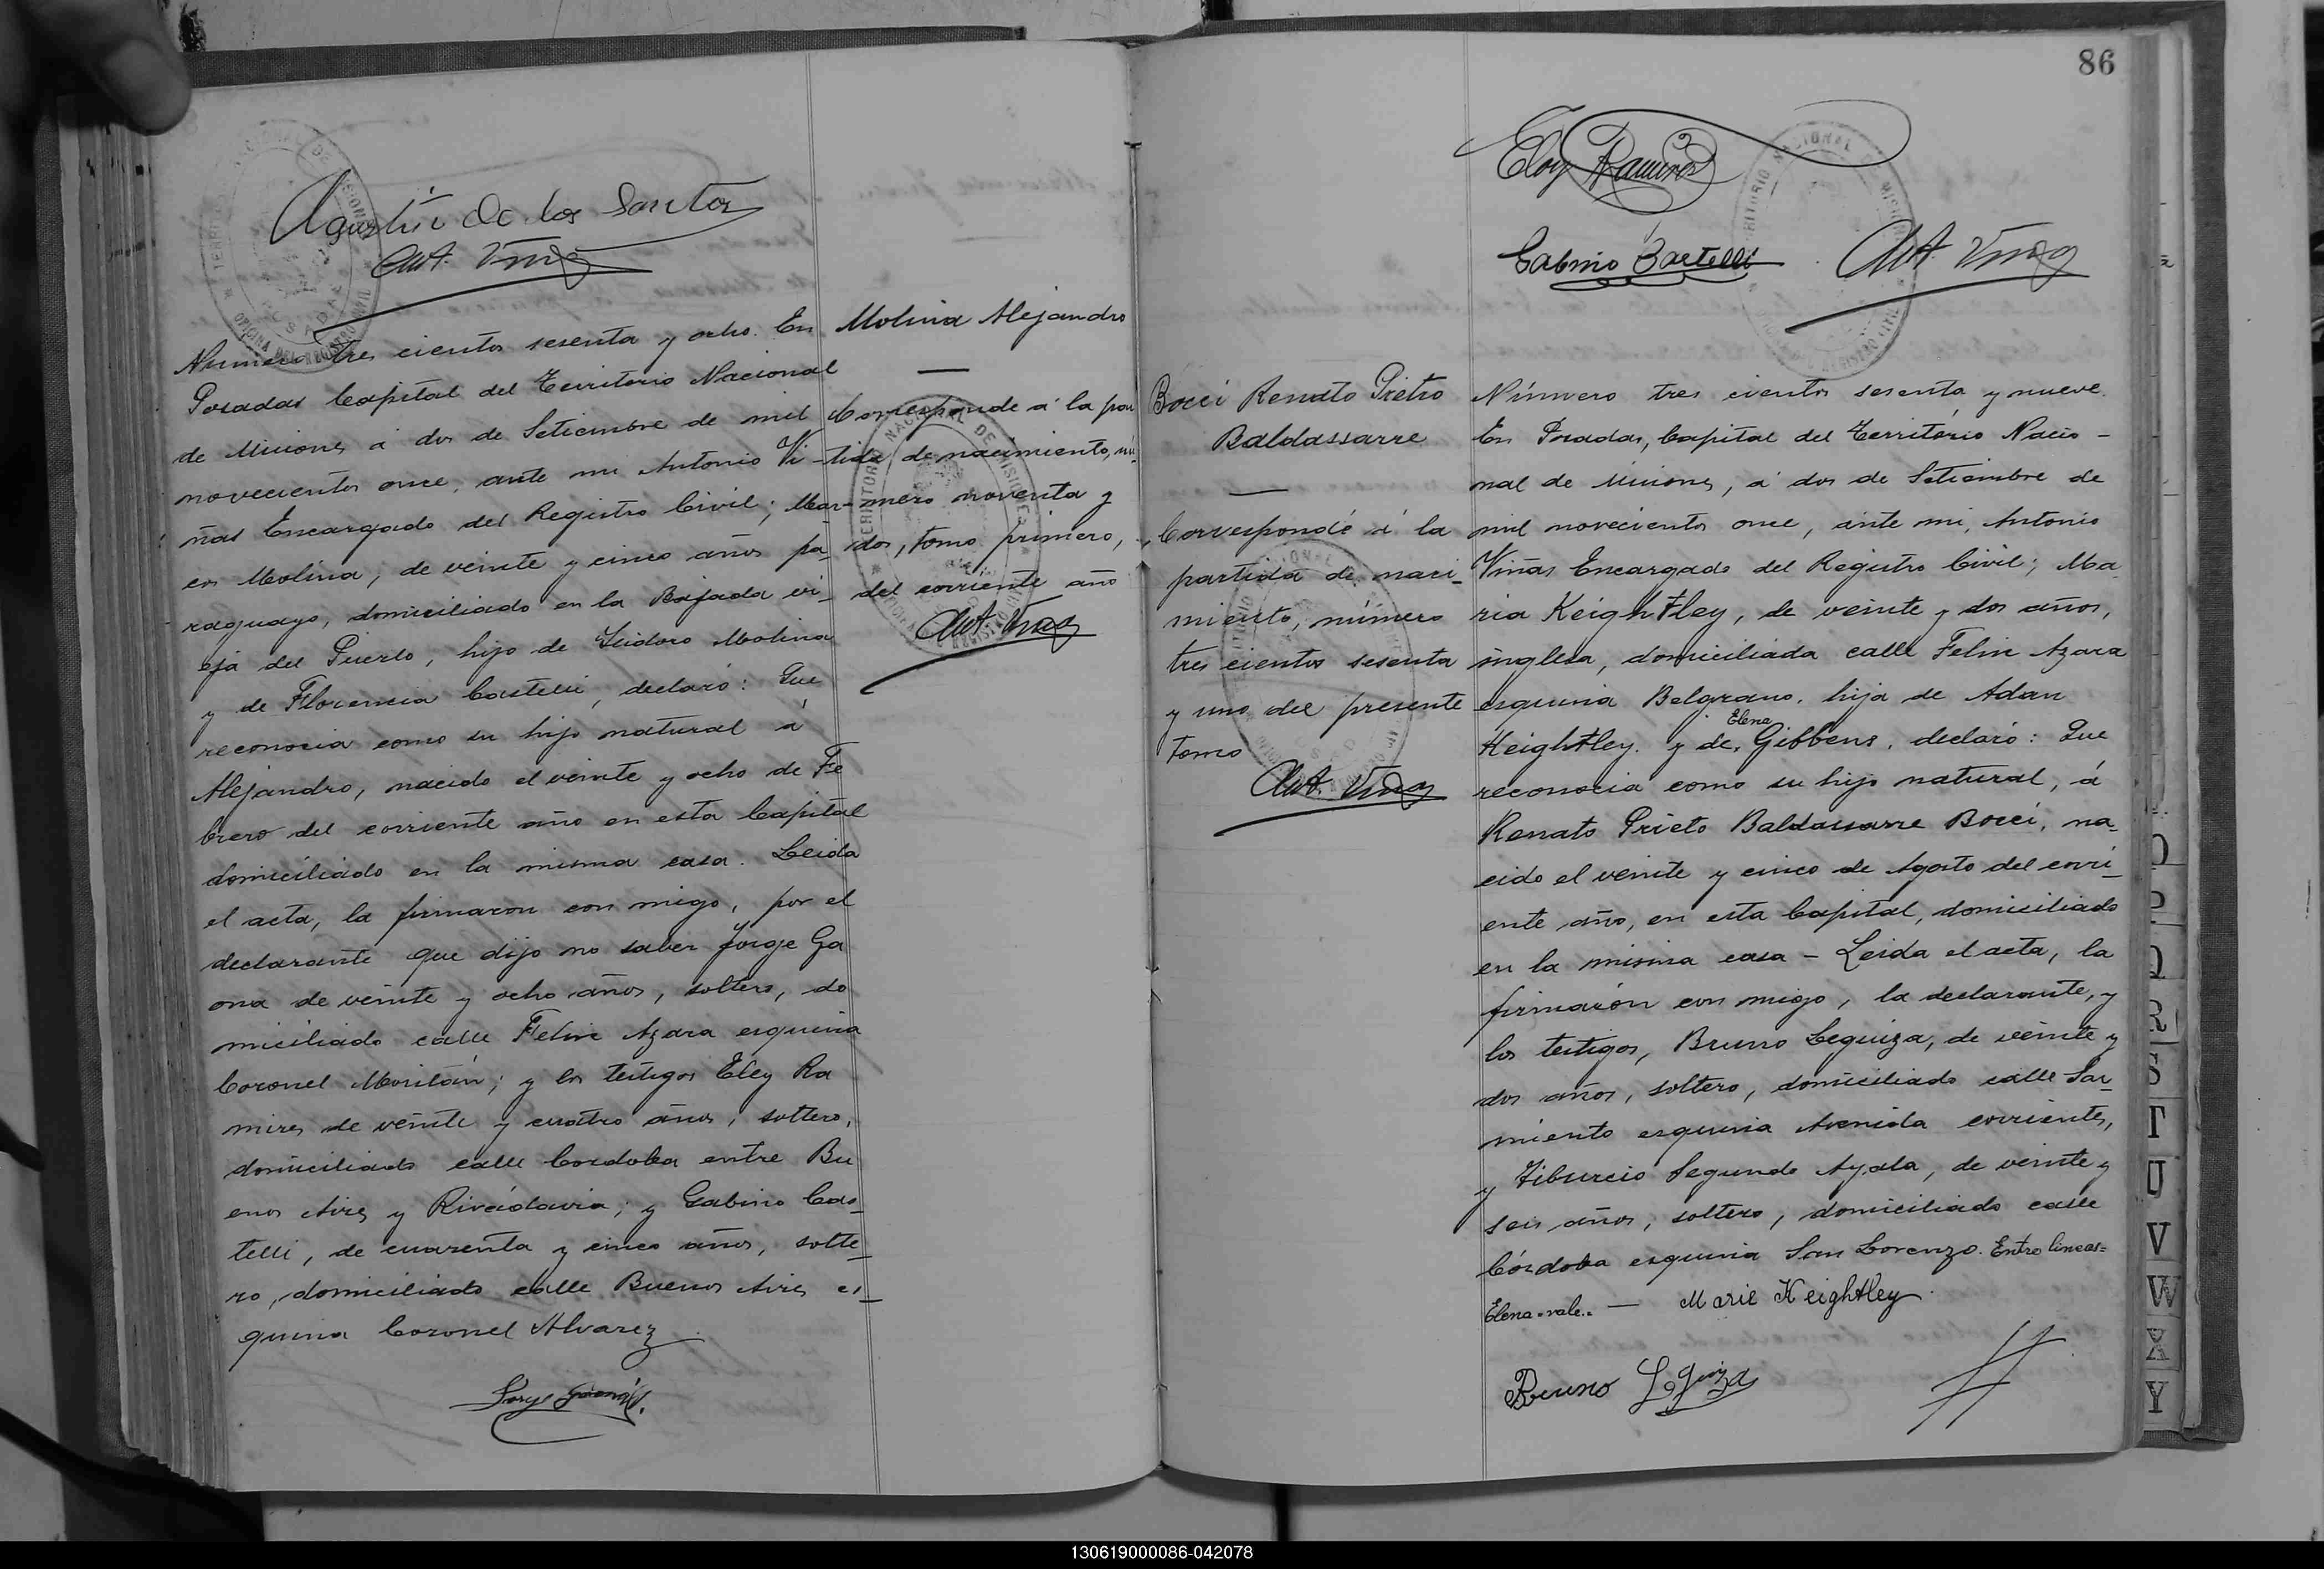 Agustín De los Santos
Ant. Viñas
Numero tres cientos sesenta y ocho. En
Posadas Capital del Territorio Nacional
de Misiones á dos de Setiembre de mil
novecientos once, ante mi Antonio Vi-
ñas Encargado del Registro Civil; Mar-
cos Molina, de veinte y cinco años pa-
raguayo, domiciliado en la Bajada vi-
eja del Puerto, hijo de Isidoro Molina
y de Florencia Castelli, declaró: Que
reconocia como su hijo natural á
Alejandro, nacido el veinte y ocho de Fe
brero del corriente año en esta Capital
domiciliado en la misma casa. Leida
el acta, la firmaron con migo, por el
declarante que dijo no saber Jorge Ga
ona de veinte y ocho años, soltero, do
miciliado calle Felix Azara esquina
Coronel Morilán; y los testigos Eloy Ra
mires de veinte y cuatro años, soltero,
domiciliado calle Cordoba entre Bu
enos Aires y Rivadavia; y Gabino Cas-
telli, de cuarenta y cinco años, solte-
ro, domiciliado calle Buenos Aires es-
quina Coronel Alvarez
Molina Alejandro
Corresponde á la par
tida de nacimiento, nú-
mero noventa y
dos, tomo primero,
del corriente año
Ant. Viñas
86
Eloy Ramires
Gabino Castelli
Ant. Viñas
Bocci Renato Pietro
Baldassarre
Corresponde á la
partida de naci-
miento, número
tres cientos sesenta
y uno del presente
tomo
Ant. Viñas
Número tres cientos sesenta y nueve.
En Posadas, Capital del Territorio Nacio-
nal de Misiones, á dos de Setiembre de
mil novecientos once, ante mi, Antonio
Viñas Encargado del Registro Civil; Ma-
ria Keightley, de veinte y dos años,
inglesa, domiciliada calle Felix Azara
esquina Belgrano, hija de Adan
Elena
Keightley. y de, Gibbens, declaró: Que
reconocia como su hijo natural, á
Renato Prieto Baldassarre Bocci, na-
cido el veinte y cinco de Agosto del corri-
ente año, en esta Capital, domiciliado
en la misma casa - Leida el acta, la
firmarón con migo, la declarante, y
los testigos, Bruno Leguiza, de veinte y
dos años, soltero, domiciliado calle Sar-
miento esquina Avenida corrientes,
y Tiburcio Segundo Ayala, de veinte y
seis años, soltero, domiciliado calle
Córdoba esquina San Lorenzo. Entre lineas=
Elena=vale.= — Marie Keightley.
Bruno Leguiza
O
P
Q
R
S
T
U
V
W
X
Y
130619000086-042078